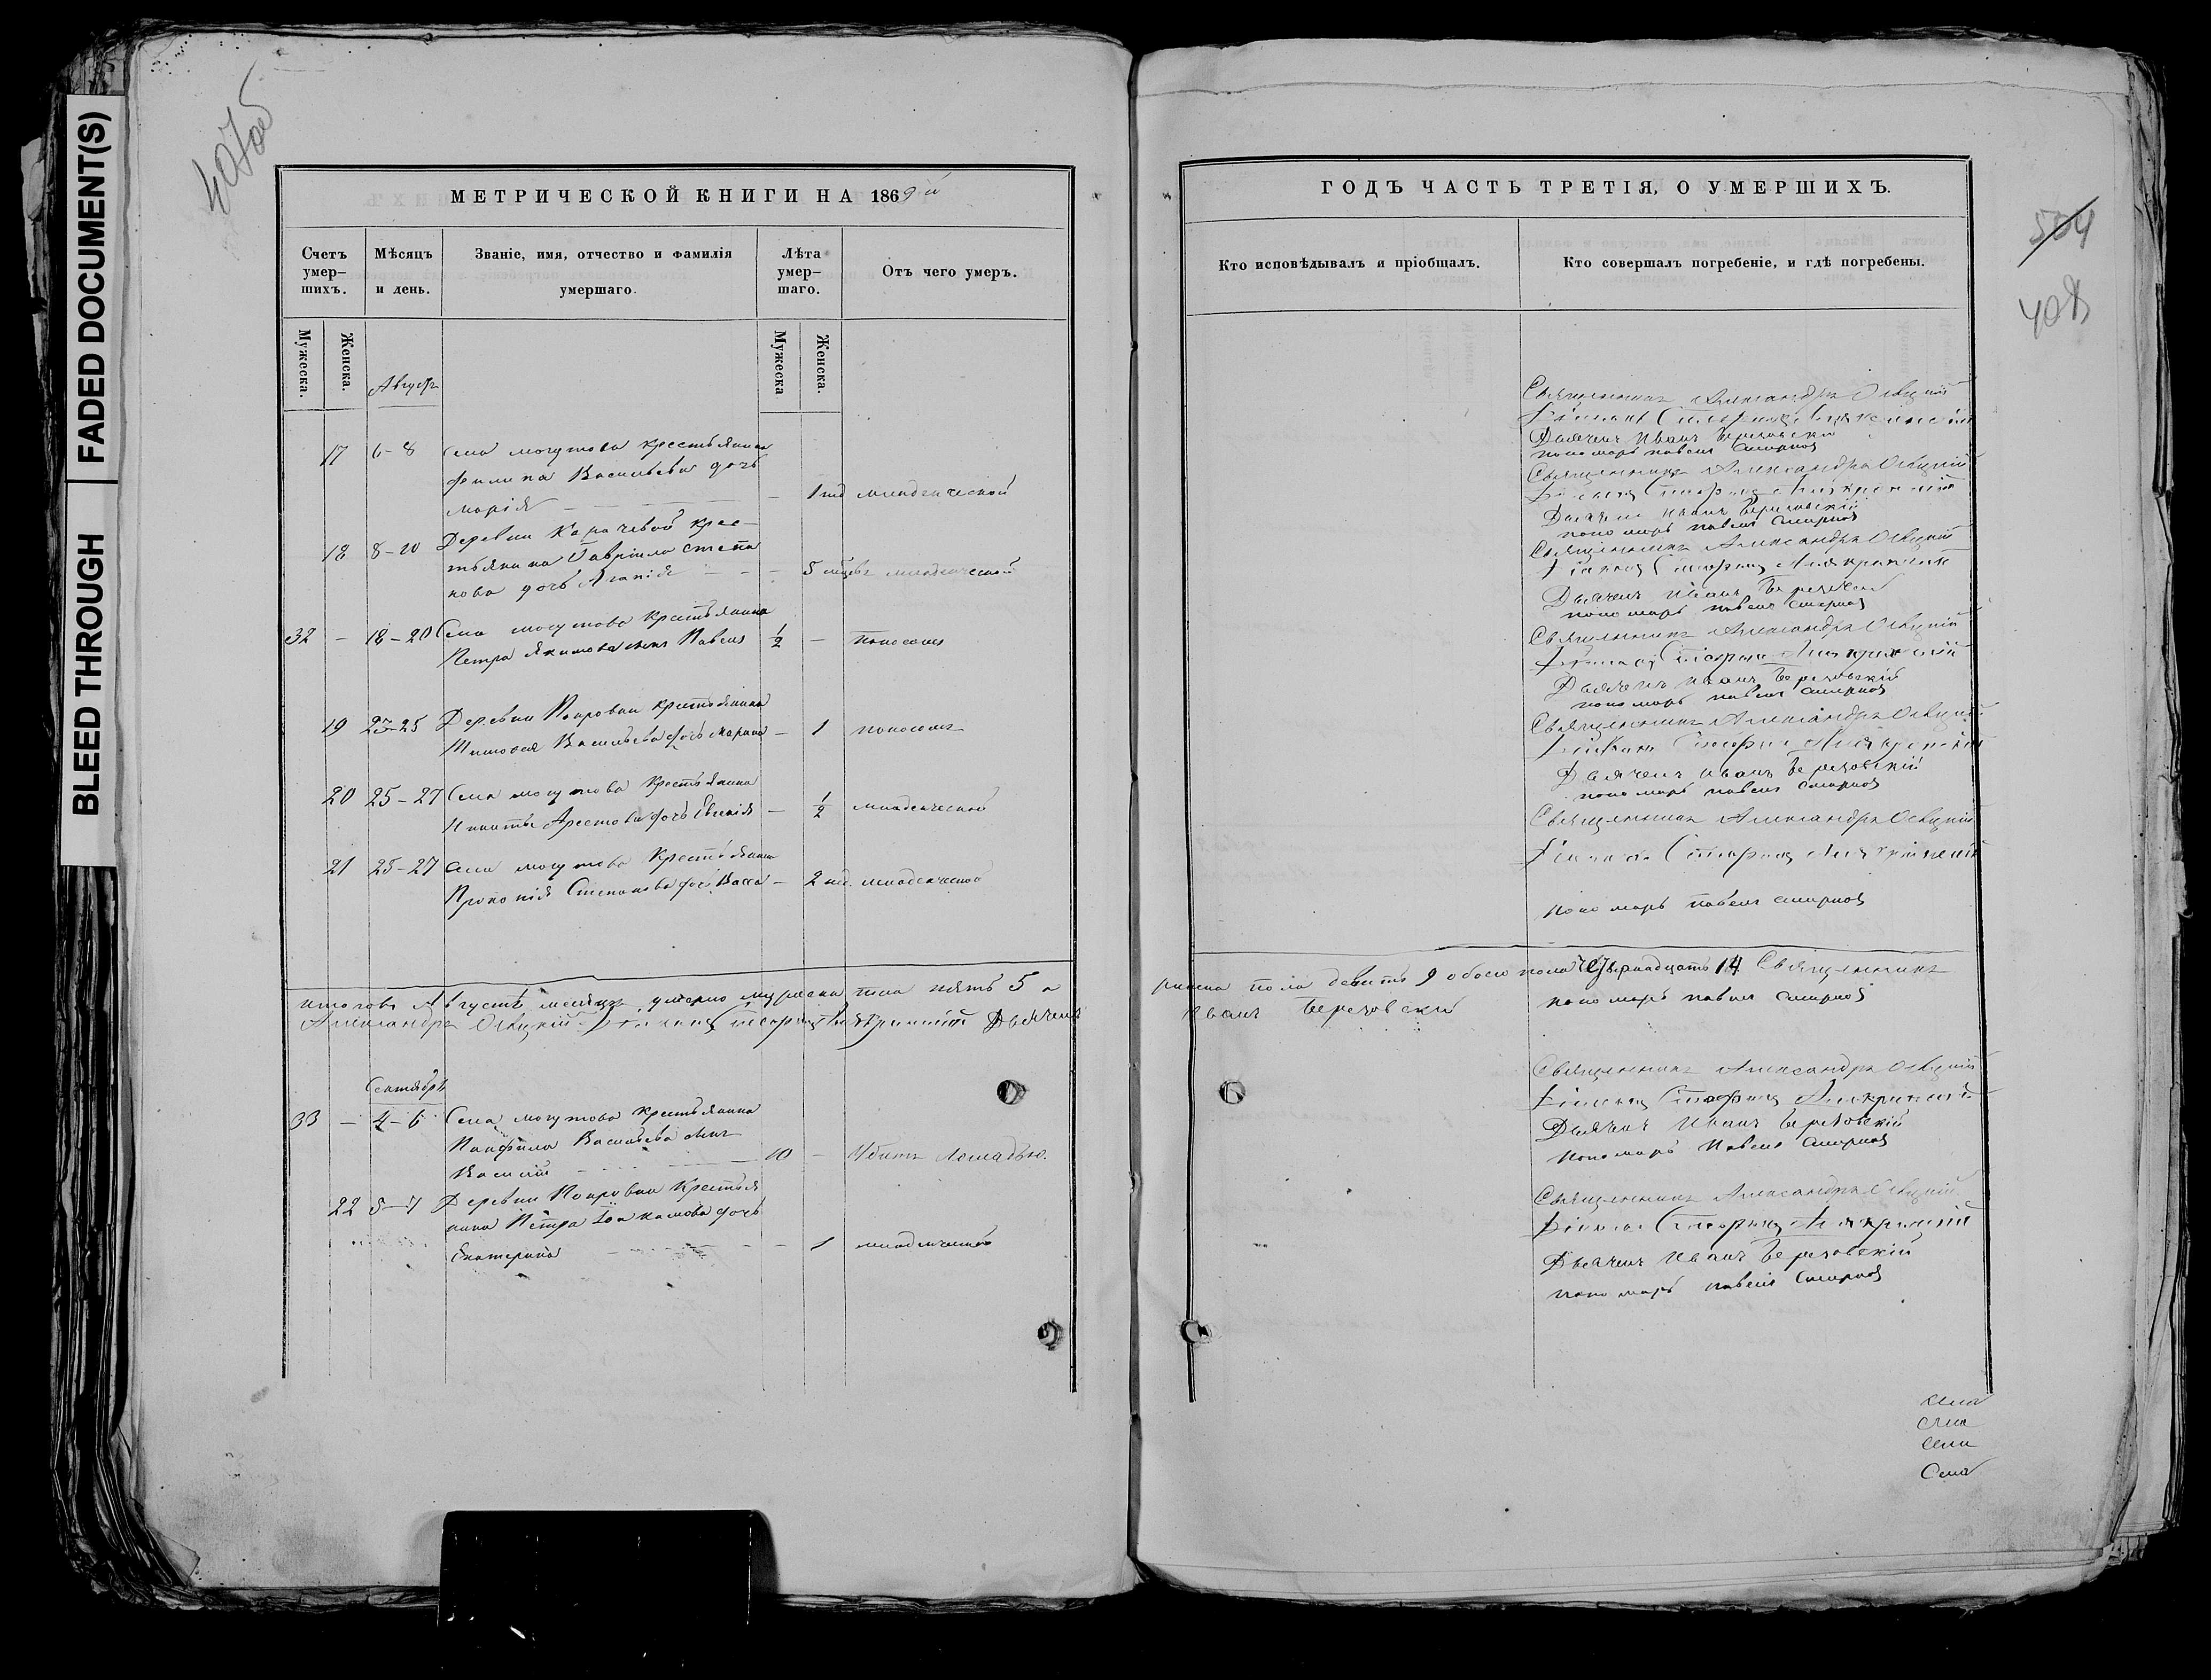 BLEED THROUGH
FADED DOCUMENT(S)
407об
МЕТРИЧЕСКОЙ КНИГИ НА 1869й
Счетъ умер-шихъ.
Мѣсяцъ и день.
Званіе, имя, отчество и фамилія умершаго.
Лѣта умер-шаго.
Отъ чего умеръ.
Мужеска.
Женска.
Мужеска
Женска.
Августъ
17 6-8 Села Могутова крестьянина
Филипа Васильева дочь
Марія - 1 нд младенческой
18 8-10 Деревни Карачевой крес-
тьянина Гавріила Степа
нова дочь Агапія - 5 мцевъ младенческой
32 - 18-20 Села Могутова Крестьянина
Петра Якимова сынъ Павелъ 1/2 - поносомъ
19 23-25 Деревни Покровки крестьянина
Тимофея Васильева дочь Марина - 1 поносомъ
20 25-27 Села Могутова Крестьянина
Никиты Арестова дочь Евгенія - 1/2 младенческой
21 25-27 Села Могутова Крестьянина
Прокопія Степанова дочь Васса - 2 нд. младенческой
итого въ Августѣ месяцѣ умерло мужеска пола пять 5 а
Александръ Осецкій Дьячекъ
Сентябрь
33 - 4-6 Села Могутова Крестьянина
Панфила Васильева сынъ
Василій 10 - Убитъ Лошадью.
22 5-7 Деревни Покровки Крестья
нина Петра Іоакимова дочь
Екатерина - 1 младенческой
ГОДЪ ЧАСТЬ ТРЕТІЯ, О УМЕРШИХЪ.
504
408
Кто исповѣдывалъ и пріобщалъ.
Кто совершалъ погребеніе, и гдѣ погребены.
Священникъ Александръ Осецкій
Дьячекъ Иванъ Березовскій
пономарь павелъ Смирнов
Священникъ Александръ Осецкій
Дьячекъ Иванъ Березовскій
пономарь павелъ Смирнов
Священникъ Александръ Осецкій
Дьячекъ Иванъ Березовскій
пономарь павелъ Смирнов
Священникъ Александръ Осецкій
Дьячекъ Иванъ Березовскій
пономарь павелъ Смирнов
Священникъ Александръ Осецкій
Дьячекъ Иванъ Березовскій
пономарь павелъ Смирнов
Священникъ Александръ Осецкій
пономарь павелъ Смирнов
пола девять 9 обоего пола четырнадцать 14 Священникъ
Иванъ Березовскій пономарь павелъ Смирнов
Священникъ Александръ Осецкій
Дьячекъ Иванъ Березовскій
Пономарь Павелъ Смирнов
Священникъ Александръ Осецкій
Дьячекъ Иванъ Березовскій
пономарь павелъ Смирнов
села
села
села
Села